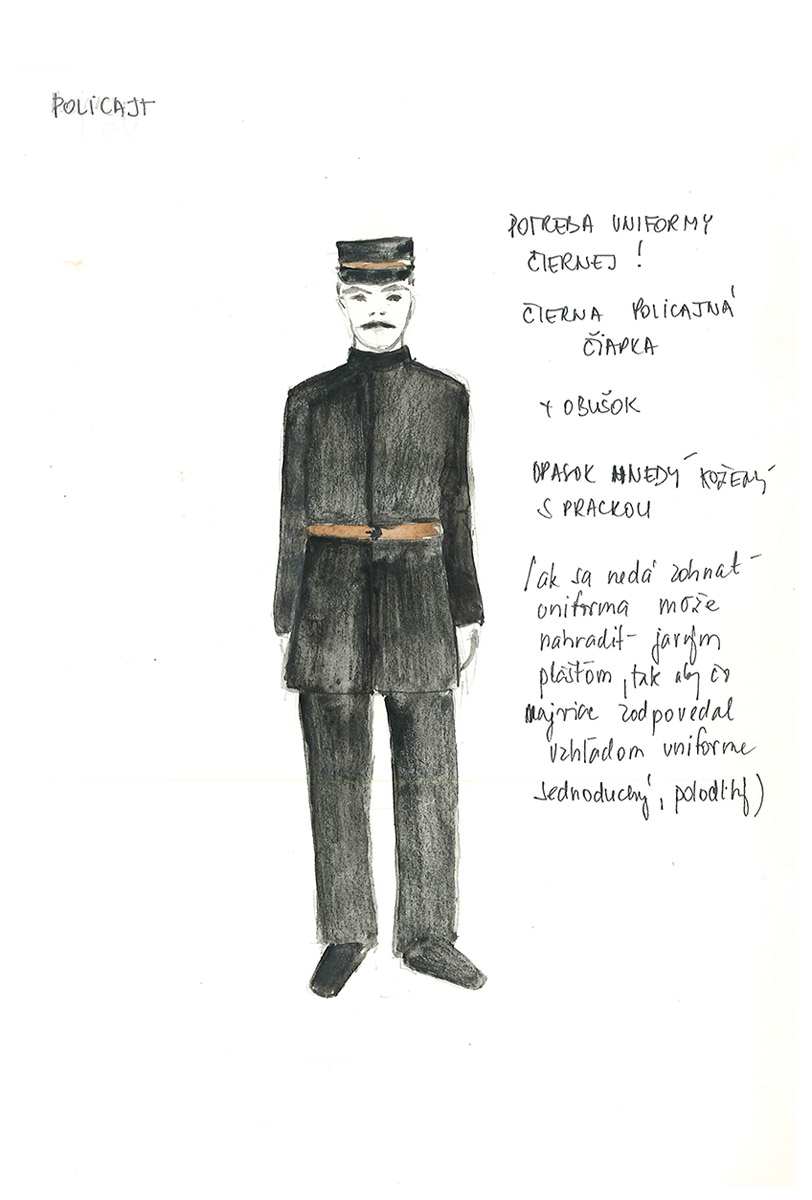 POLICAJT
POTREBA UNIFORMY
ČIERNEJ !
ČIERNA POLICAJNÁ
ČIAPKA
+ OBUŠOK
OPASOK HNEDÝ KOŽENÝ
S PRACKOU
(ak sa nedá zohnať
uniforma môže
nahradiť jarným
plášťom, tak aby čo
najviac zodpovedal
vzhľadom uniforme
jednoduchý, polodlhý)